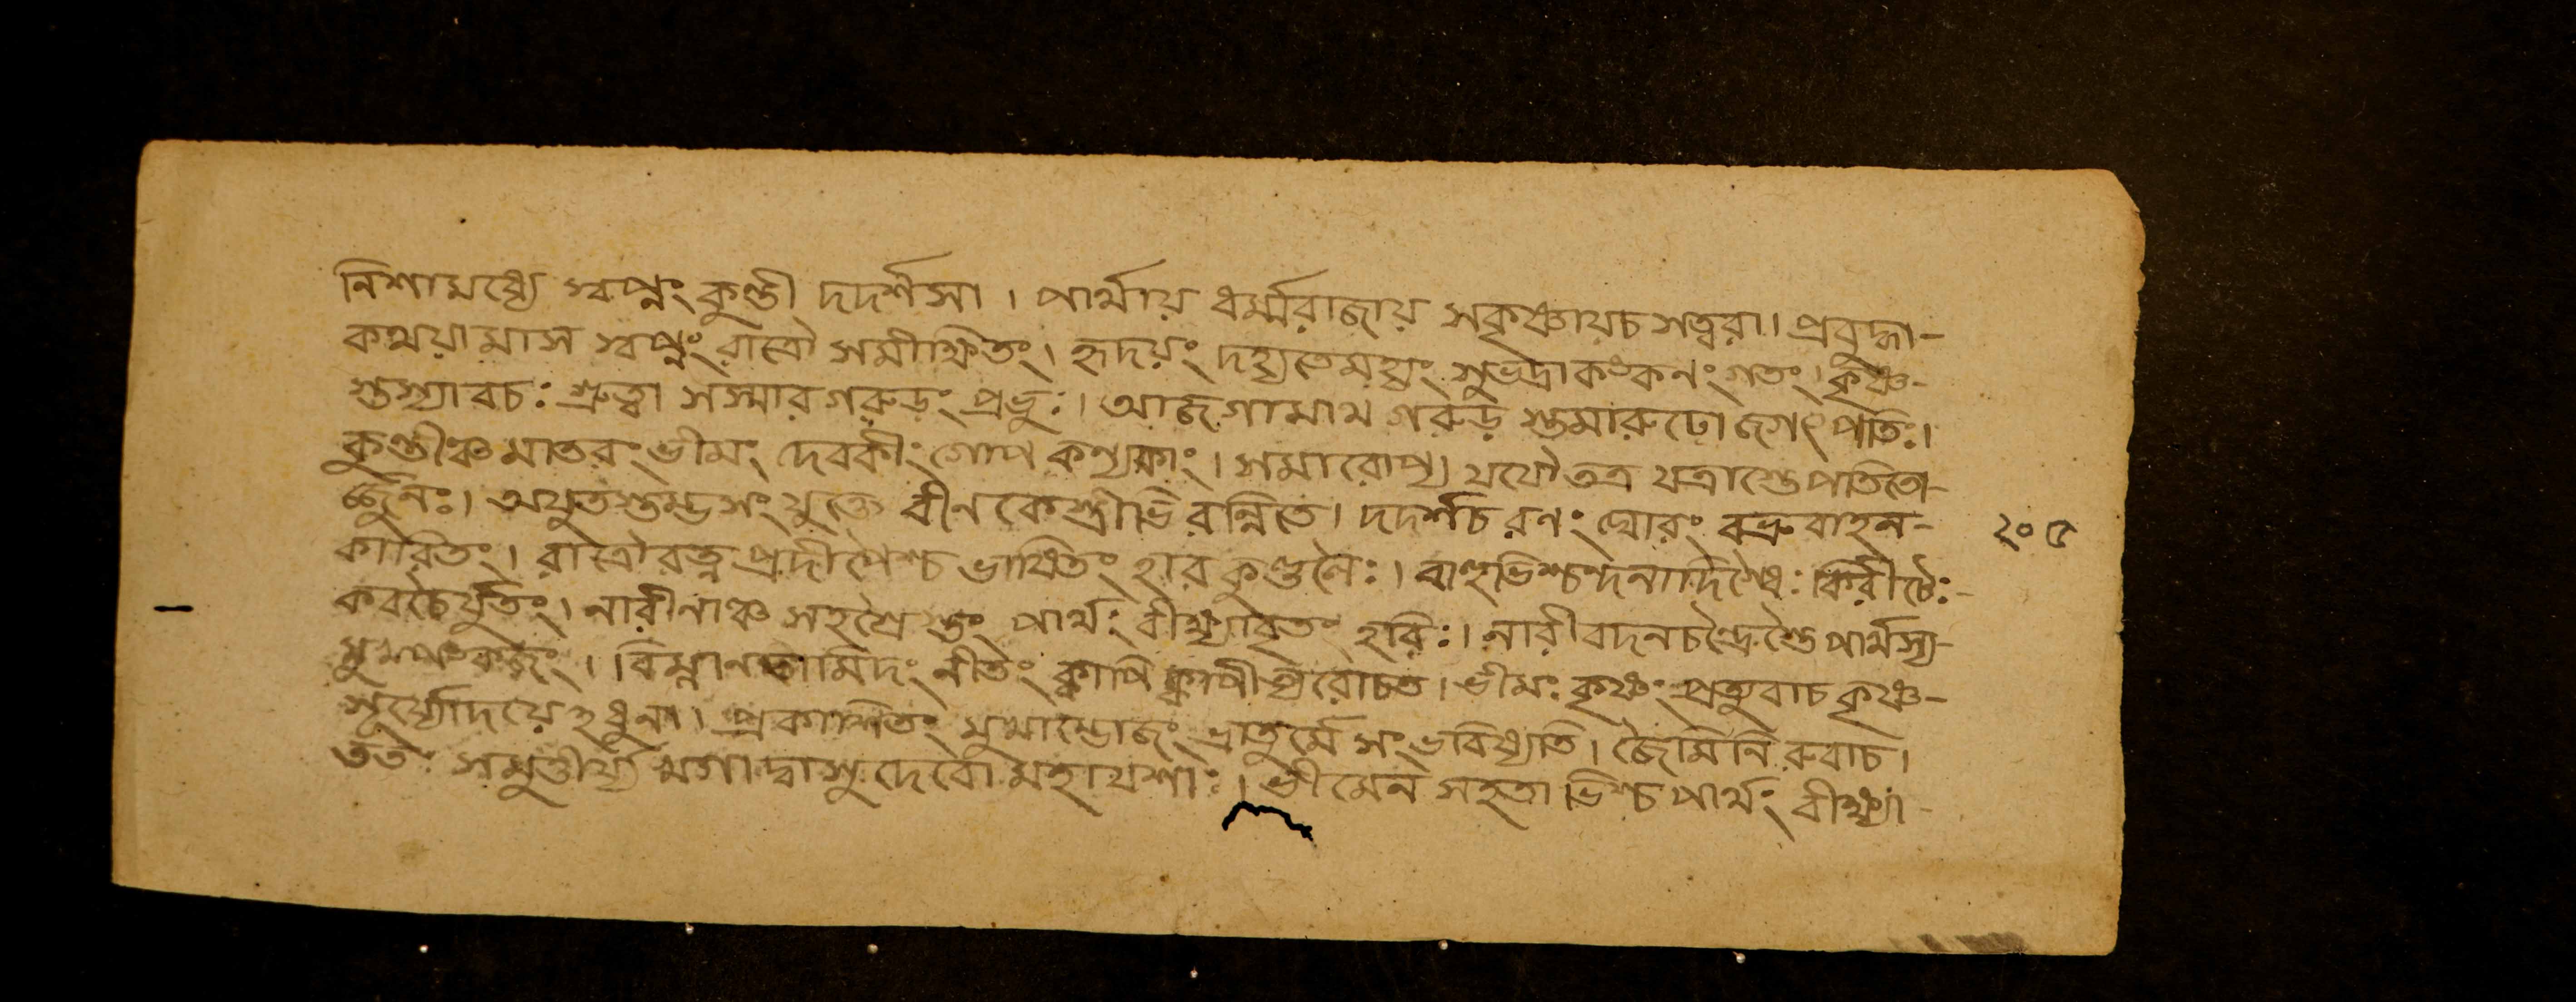 নিশামধ্যে স্বপ্নং কুন্তী দদর্শসা । পার্থায় ধর্ম্মরাজায় সকৃষ্ণায়চ সত্বরা। প্রবুদ্ধা-
কথয়ামাস স্বপ্নং রাত্রৌ সমীক্ষিতং। হৃদয়ং দহ্যতেমহ্যং সুভদ্রাকঙ্কনংগতং। কৃষ্ণ-
স্তস্যাবচঃ শ্রুত্বা সস্মারগরুড়ং প্রভুঃ। আজগামাথ গরুড় স্তমারুঢো জগৎপতিঃ।
কুন্তীঞ্চ মাতরং ভীমং দেবকীং গোপ কন্যকাং। সমারোপ্য যযৌতত্র যত্রাস্তেপতিতো-
র্জ্জুনঃ। অযুতস্তম্ভসংযুক্তে বীনকেস্ত্রীভিরন্নিতে। দদর্শচ রণং ঘোরং বভ্রুবাহন-
কারিতং। রাত্রৌরত্ন প্রদীপৈশ্চ ভাষিতং হার কুণ্ডলৈঃ। বাহুভিশ্চন্দনাদিগ্ধৈঃ কিরীটৈঃ-
কবচৈর্যুতং। নারীনাঞ্চ সহস্রৈ স্তং পার্থং বীক্ষ্যাবৃতং হরিঃ। নারীবদনচন্দ্রৈস্তৈ পার্থস্য-
মুখপঙ্কজং। বিম্লানতামিদং নীতং ক্বাপি ক্বাপীহ্যরোচত। ভীমঃ কৃষ্ণং প্রত্যুবাচ কৃষ্ণ-
সূর্য্যোদয়ে হধুনা। প্রকাশিতং মুখাম্ভোজং ভ্রাতুর্মে সংভবিষ্যতি। জৈমিনি রুবাচ।
ততঃ সমুত্তীর্য্য মগাদ্বাসুদেবো মহাযশাঃ। ভীমেন সহতাভিশ্চ পার্থং বীক্ষ্যা-
২০৫